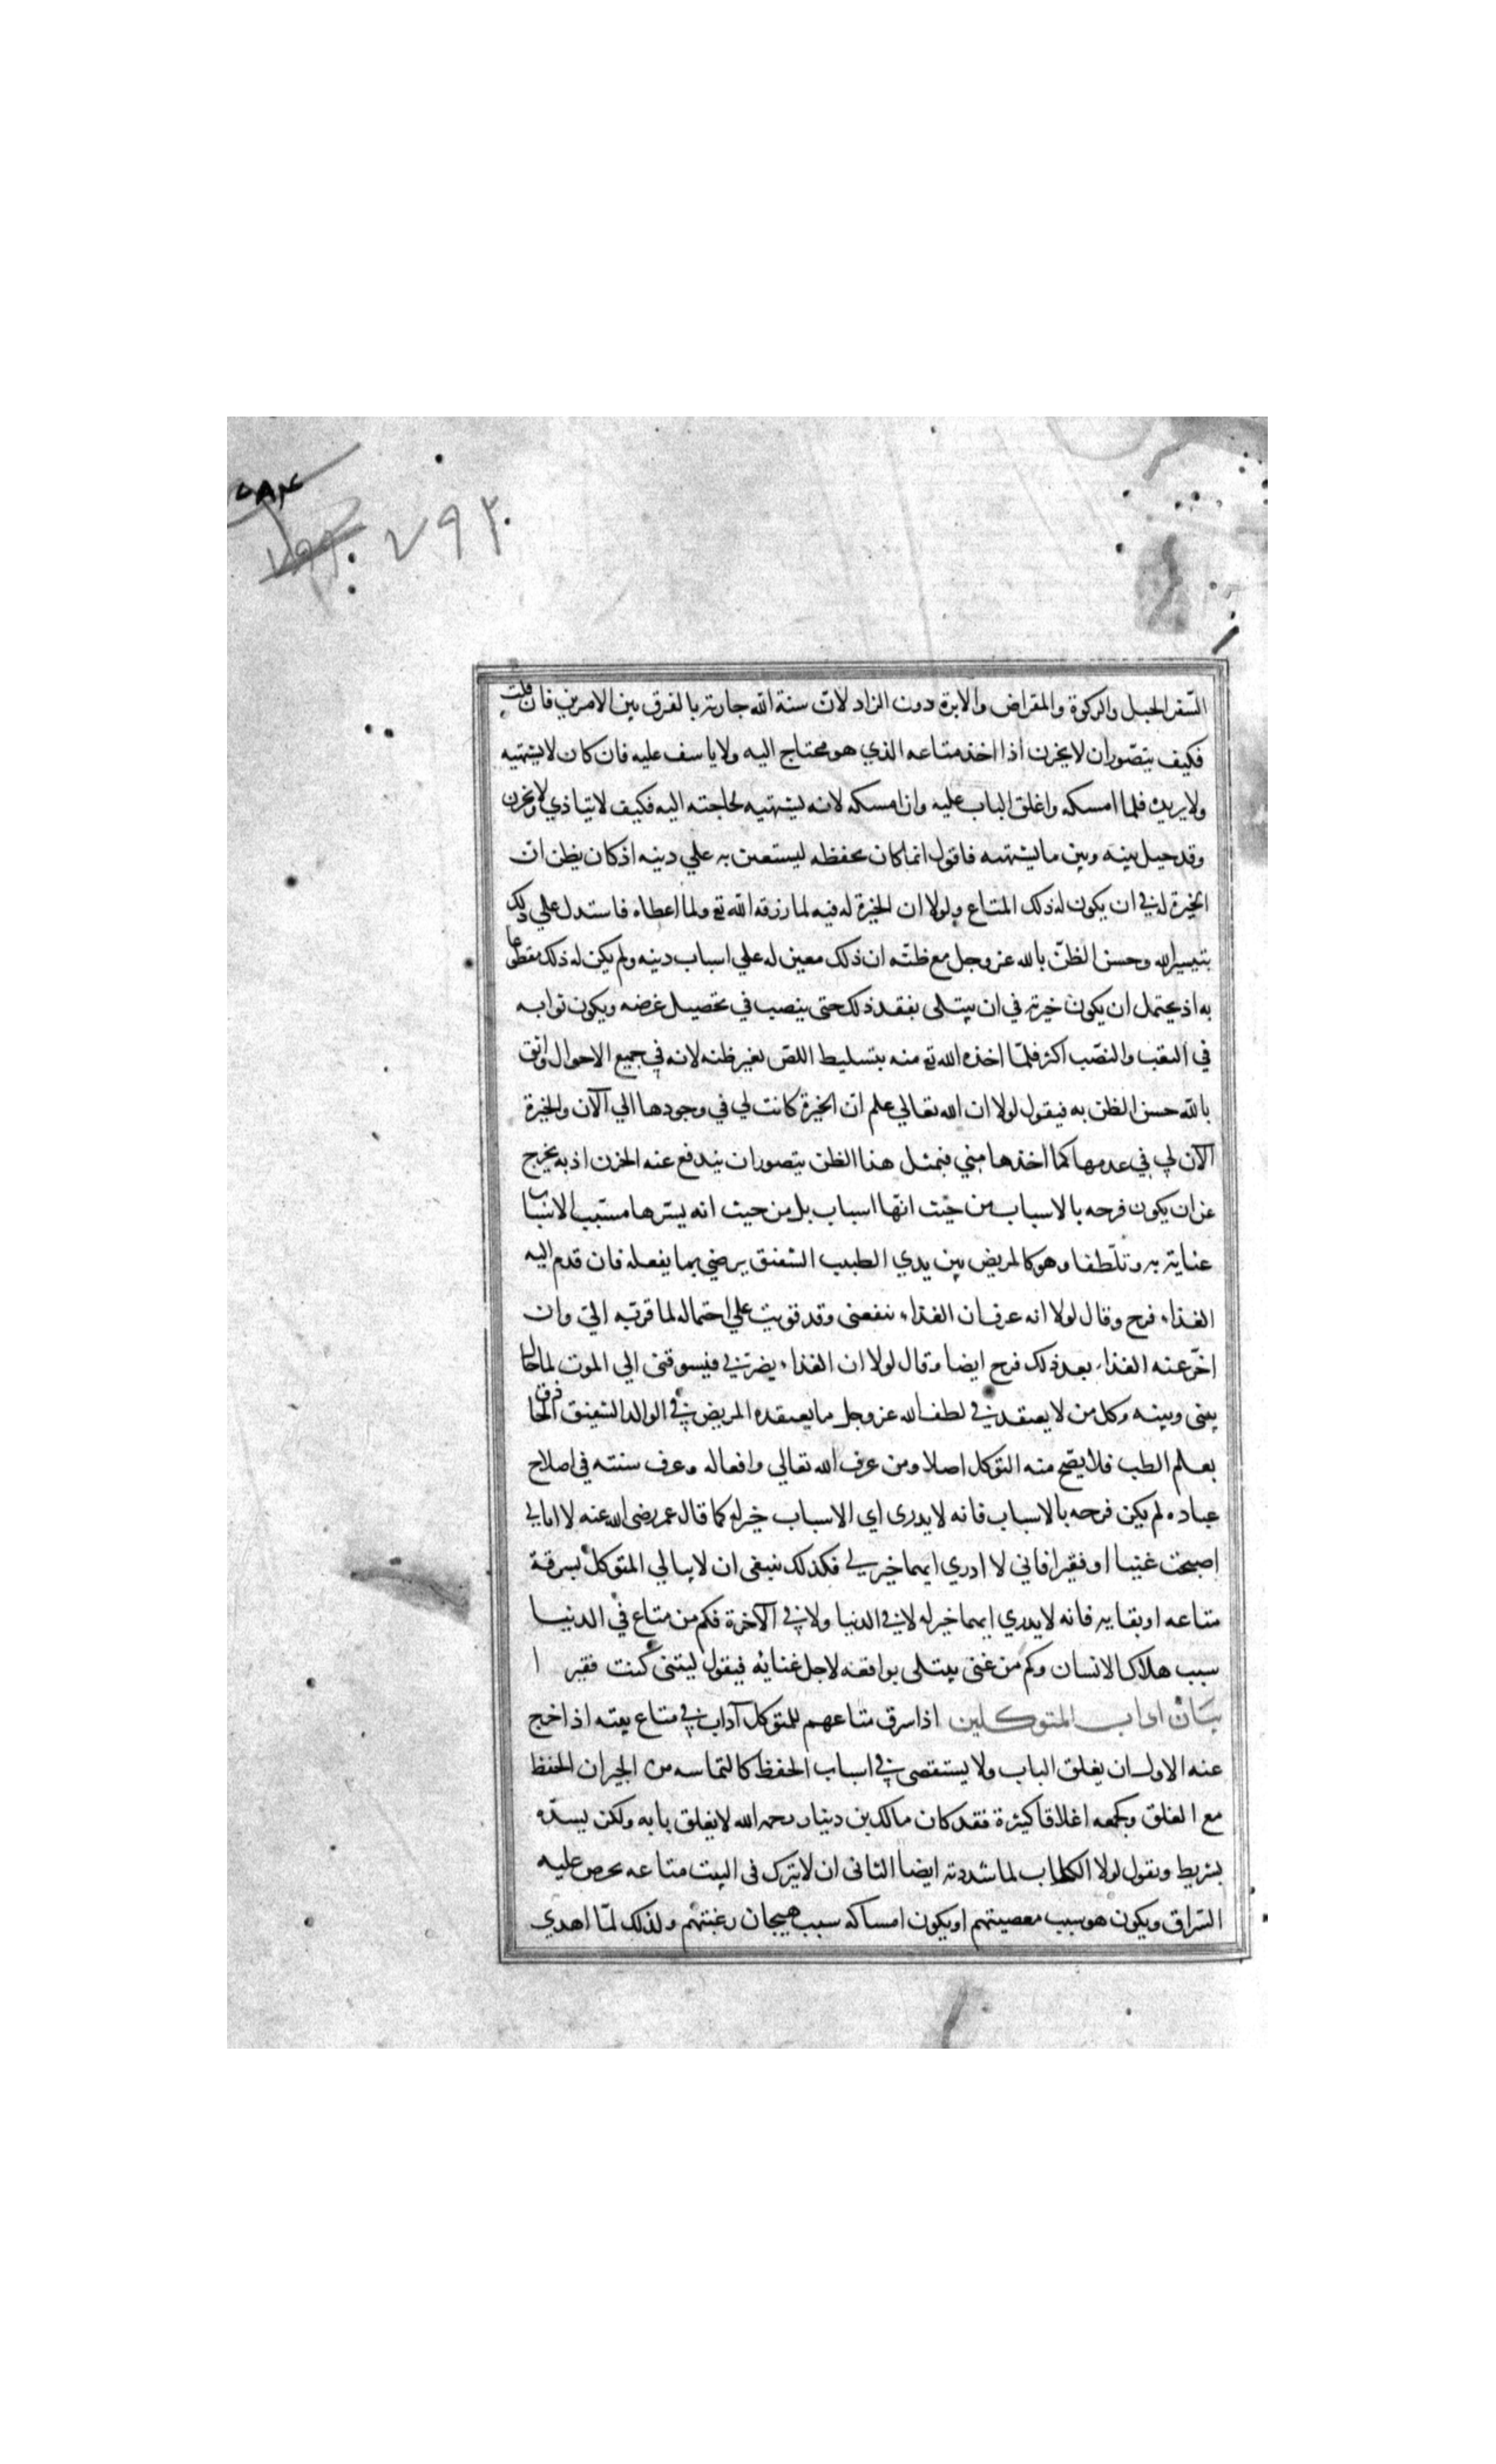 ٧٨٤
٧٩٣
السّفر الحبل والركوة والمقراض والابرة دون الزاد لانّ سنة الله جارية بالفرق بين الامرين فان قلت
فكيف يتصّور ان لا يحزن اذا اخذ متاعه الذي هو محتاج اليه ولا ياسف عليه فان كان لا يشتهيه
ولا يريده فلما امسكه واغلق الباب عليه وان امسكه لانه يشتهيه لحاجته اليه فكيف لا يتاذي ولا يحزن
وقد حيل بينه وبين ما يشتهيه فاقول انما كان يحفظه ليستعين به علي دينه اذ كان يظن انّ
الخيرة له في ان يكون له ذلك المتاع ولولا ان الخيرة له فيه لما رزقه الله تع ولما اعطاه فاستدل علي ذلك
بتيسير الله وحسن الظنّ بالله عز وجل مع ظنّه ان ذلك معين له علي اسباب دينه ولم يكن له ذلك مقطوعا
به اذ يحتمل ان يكون خيرته في ان يبتلى بفقد ذلك حتى ينصب في تحصيل غرضه ويكون ثوابه
في التعب والنصّب اكثر فلمّا اخذه الله تع منه بتسليط اللصّ تغير ظنه لانه في جميع الاحوال واثق
بالله حسن الظن به فيقول لولا ان الله تعالي علم انّ الخيرة كانت لي في وجودها الي الآن والخيرة
الآن لي في عدمها كما اخذها مني فبمثل هذا الظن يتصور ان يندفع عنه الحزن اذ به يخرج
عن ان يكون فرحه بالاسباب من حيث انها اسباب بل من حيث انه يسّرها مسّبب الاسباب
عناية به وتلّطفا وهو كالمريض بين يدي الطبيب الشفيق يرضي بما يفعله فان قدم اليه
الغذاء فرح وقال لولا انه عرف ان الغذاء ينفعني وقد قويت علي احتماله لما قربه اليّ وان
اخّر عنه الغذاء بعد ذلك فرح ايضا وقال لولا ان الغذاء يضرّني فيسوقني الي الموت لما حال
بيني وبينه وكل من لا يعتقد في لطف الله عز وجل ما يعتقده المريض في الوالد الشفيق الحاذق
بعلم الطب فلا يصّح منه التوكل اصلا ومن عرف الله تعالي وافعاله وعرف سنته في اصلاح
عباده لم يكن فرحه بالاسباب فانه لا يدرى اي الاسباب خير له كما قال عمر رضى الله عنه لا ابالي
اصبحت غنيا او فقيرا فاني لا ادري ايهما خير لي فكذلك ينبغى ان لا يبالي المتوكل بسرقة
متاعه او بقايه فانه لا يدري ايهما خير له لا في الدنيا ولا في الآخرة فكم من متاع في الدنيا
سبب هلاك الانسان وكم من غني يبتلى بواقعة لاجل غنائه فيقول ليتنى كنت فقيرا
بيان اداب المتوكلين اذا سرق متاعهم للمتوكل آداب في متاع بيته اذا خرج
عنه الاول ان يغلق الباب ولا يستقصى في اسباب الحفظ كالتماسه من الجيران الحفظ
مع الغلق وكجمعه اغلاقا كثيرة فقد كان مالك بن دينار رحمه الله لا يغلق بابه ولكن يسدّه
بشريط ويقول لولا الكلاب لما شددته ايضا الثانى ان لا يترك فى البيت متاعه يحرص عليه
السّراق ويكون هو سبب معصيتهم او يكون امساكه سبب هيجان رغبتهم ولذلك لمّا اهدي